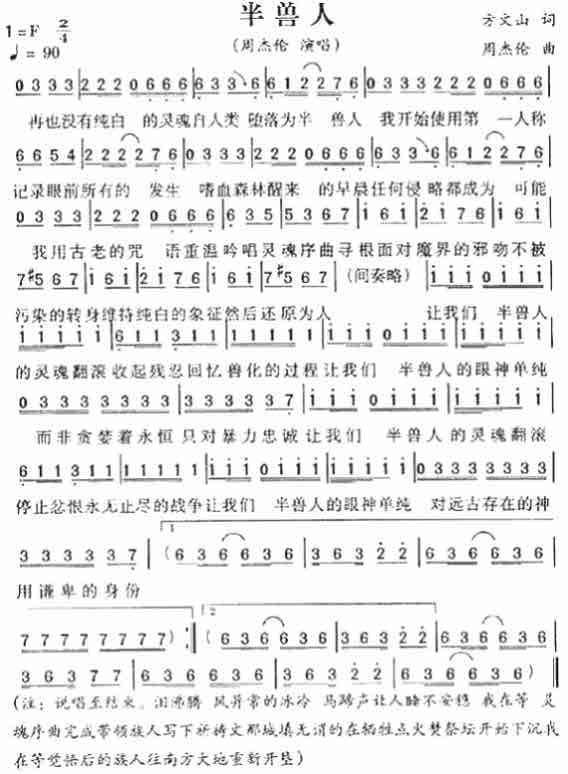 半兽人
1=F 2/4
方文山 词
♩=90
(周杰伦 演唱)
周杰伦 曲
0 3 3 3 | 2 2 2 0 6 6 6 | 6 3 3 6 | 6 1 2 2 7 6 | 0 3 3 3 | 2 2 2 0 6 6 6
再也没有纯白 的灵魂自人类 堕落为半 兽人 我开始使用第 一人称
6 6 5 4 | 2 2 2 2 7 6 | 0 3 3 3 | 2 2 2 0 6 6 6 | 6 3 3 6 | 6 1 2 2 7 6
记录眼前所有的 发生 嗜血森林醒来 的早晨任何侵 略都成为 可能
0 3 3 3 | 2 2 2 0 6 6 6 | 6 3 5 | 5 3 6 7 | i 6 i | 2 i 7 6 | i 6 i
我用古老的咒 语重温吟唱灵魂序曲寻根面对魔界的邪吻不被
7 #5 6 7 | i 6 i | 2 i 7 6 | i 6 i | 7 #5 6 7 | (间奏略) | i i i 0 i i i
污染的转身维持纯白的象征然后还原为人 让我们 半兽人
i i i i i | 6 i i 3 i i | i i i i i | i i i 0 i i i | i i i i i
的灵魂翻滚收起残忍回忆兽化的过程让我们 半兽人的眼神单纯
0 3 3 3 3 3 3 3 | 3 3 3 3 3 7 | i i i 0 i i i | i i i i i
而非贪婪着永恒只对暴力忠诚让我们 半兽人的灵魂翻滚
6 i i 3 i i | i i i i i | i i i 0 i i i | i i i i i | 0 3 3 3 3 3 3 3
停止忿恨永无止尽的战争让我们 半兽人的眼神单纯 对远古存在的神
1.
3 3 3 3 3 7 | (6 3 6 6 3 6 | 3 6 3 2 2 | 6 3 6 6 3 6
用谦卑的身份
2.
7 7 7 7 7 7 7 7) :| (6 3 6 6 3 6 | 3 6 3 2 2 | 6 3 6 6 3 6
3 6 3 7 7 | 6 3 6 6 3 6 | 3 6 3 2 2 | 6 3 6 6 3 6)
(注：说唱至结束。泪沸腾 风异常的冰冷 马蹄声让人睡不安稳 我在等 灵
魂序曲完成带领族人写下祈祷文那城填无谓的在牺牲点火焚祭坛开始下沉我
在等觉悟后的族人往南方大地重新开垦)